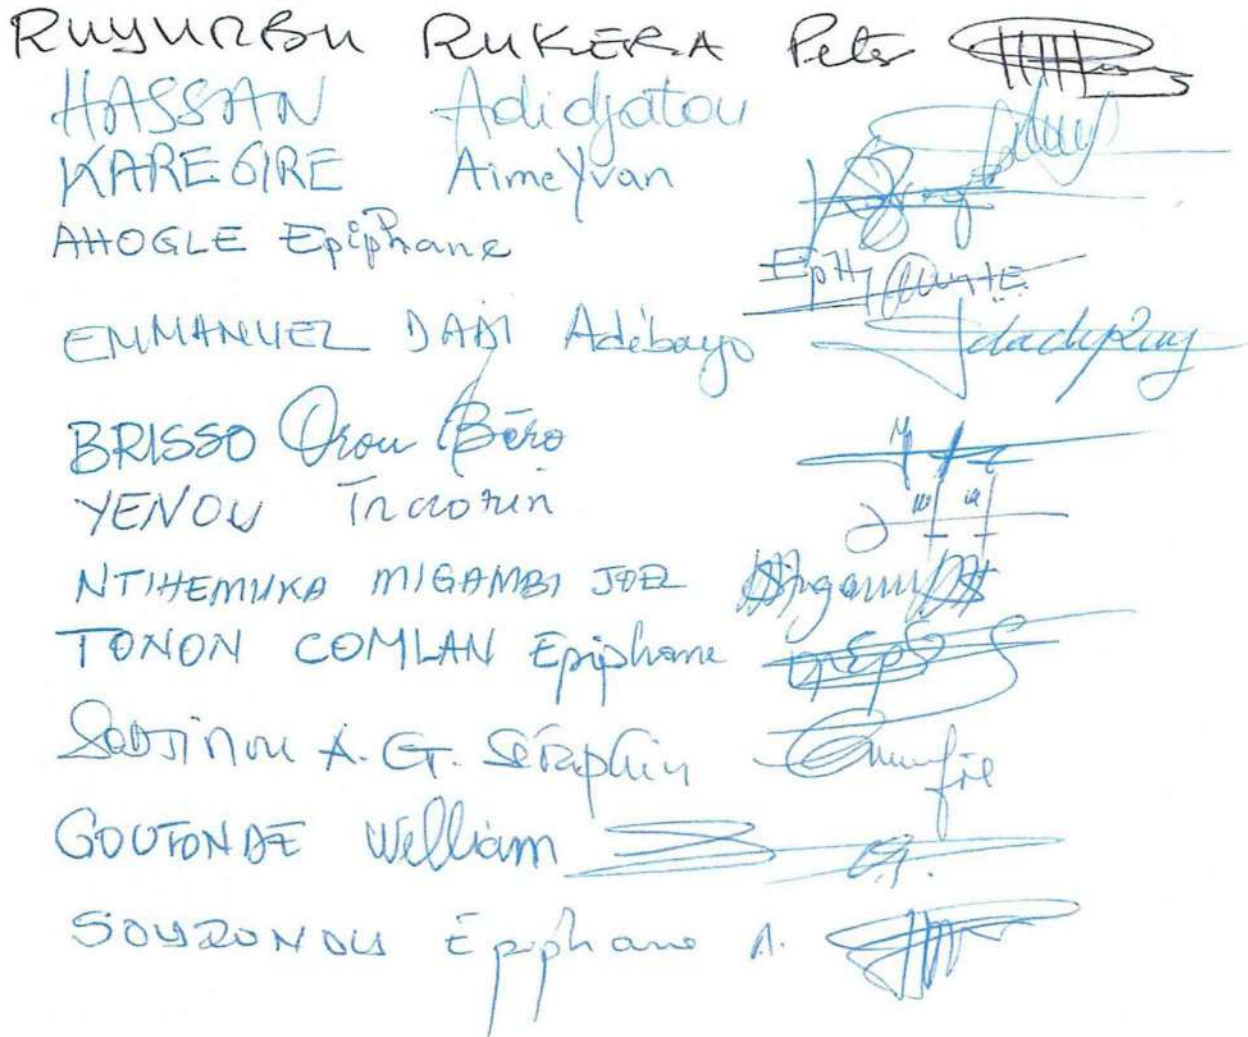 RUYURBU RUKERA Peter
HASSAN Adidjatou
KAREGIRE Aime Yvan
AHOGLE Epiphane
EMMANUEL DABI Adébayo
BRISSO Orou Béro
YENOU
NTIHEMUKA MIGAMBI JOEL
TONON COMLAN Epiphane
SODJINOU A. G. Séraphin
GOUTONDE William
SOUZONDU Epiphane A.